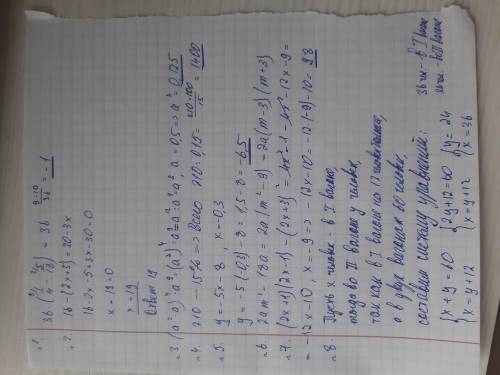 №1 36 (1/4 - 5/18) = 36 · (9-10)/36 = -1
№2. 16-(2x+5)=20-3x
16-2x-5+3x-20=0
x-19=0
x=19
Ответ 19
№4. 210 - 15% => Всего 210:0,15 = 210·100/15 = 1400
№5 y=-5x-8, x=-0,3
y=-5·(-0,3)-8=1,5-8=-6,5
№6 2am²-18a=2a(m²-9)=2a(m-3)(m+3)
№7. (2x+1)(2x-1)-(2x+3)²=4x²-1-4x²-12x-9=
=-12x-10, x=-9 => -12x-10=-12·(-9)-10=98
№8. Пусть x человек в I вагоне,
тогда во II вагоне y человек,
так как в I вагоне на 12 человек больше,
а в двух вагонах 60 человек,
составим систему уравнений:
{x+y=60 {2y+12=60 {y=24
{x=y+12 {x=y+12 {x=36
36 чел - в I вагоне
24 чел - во II вагоне